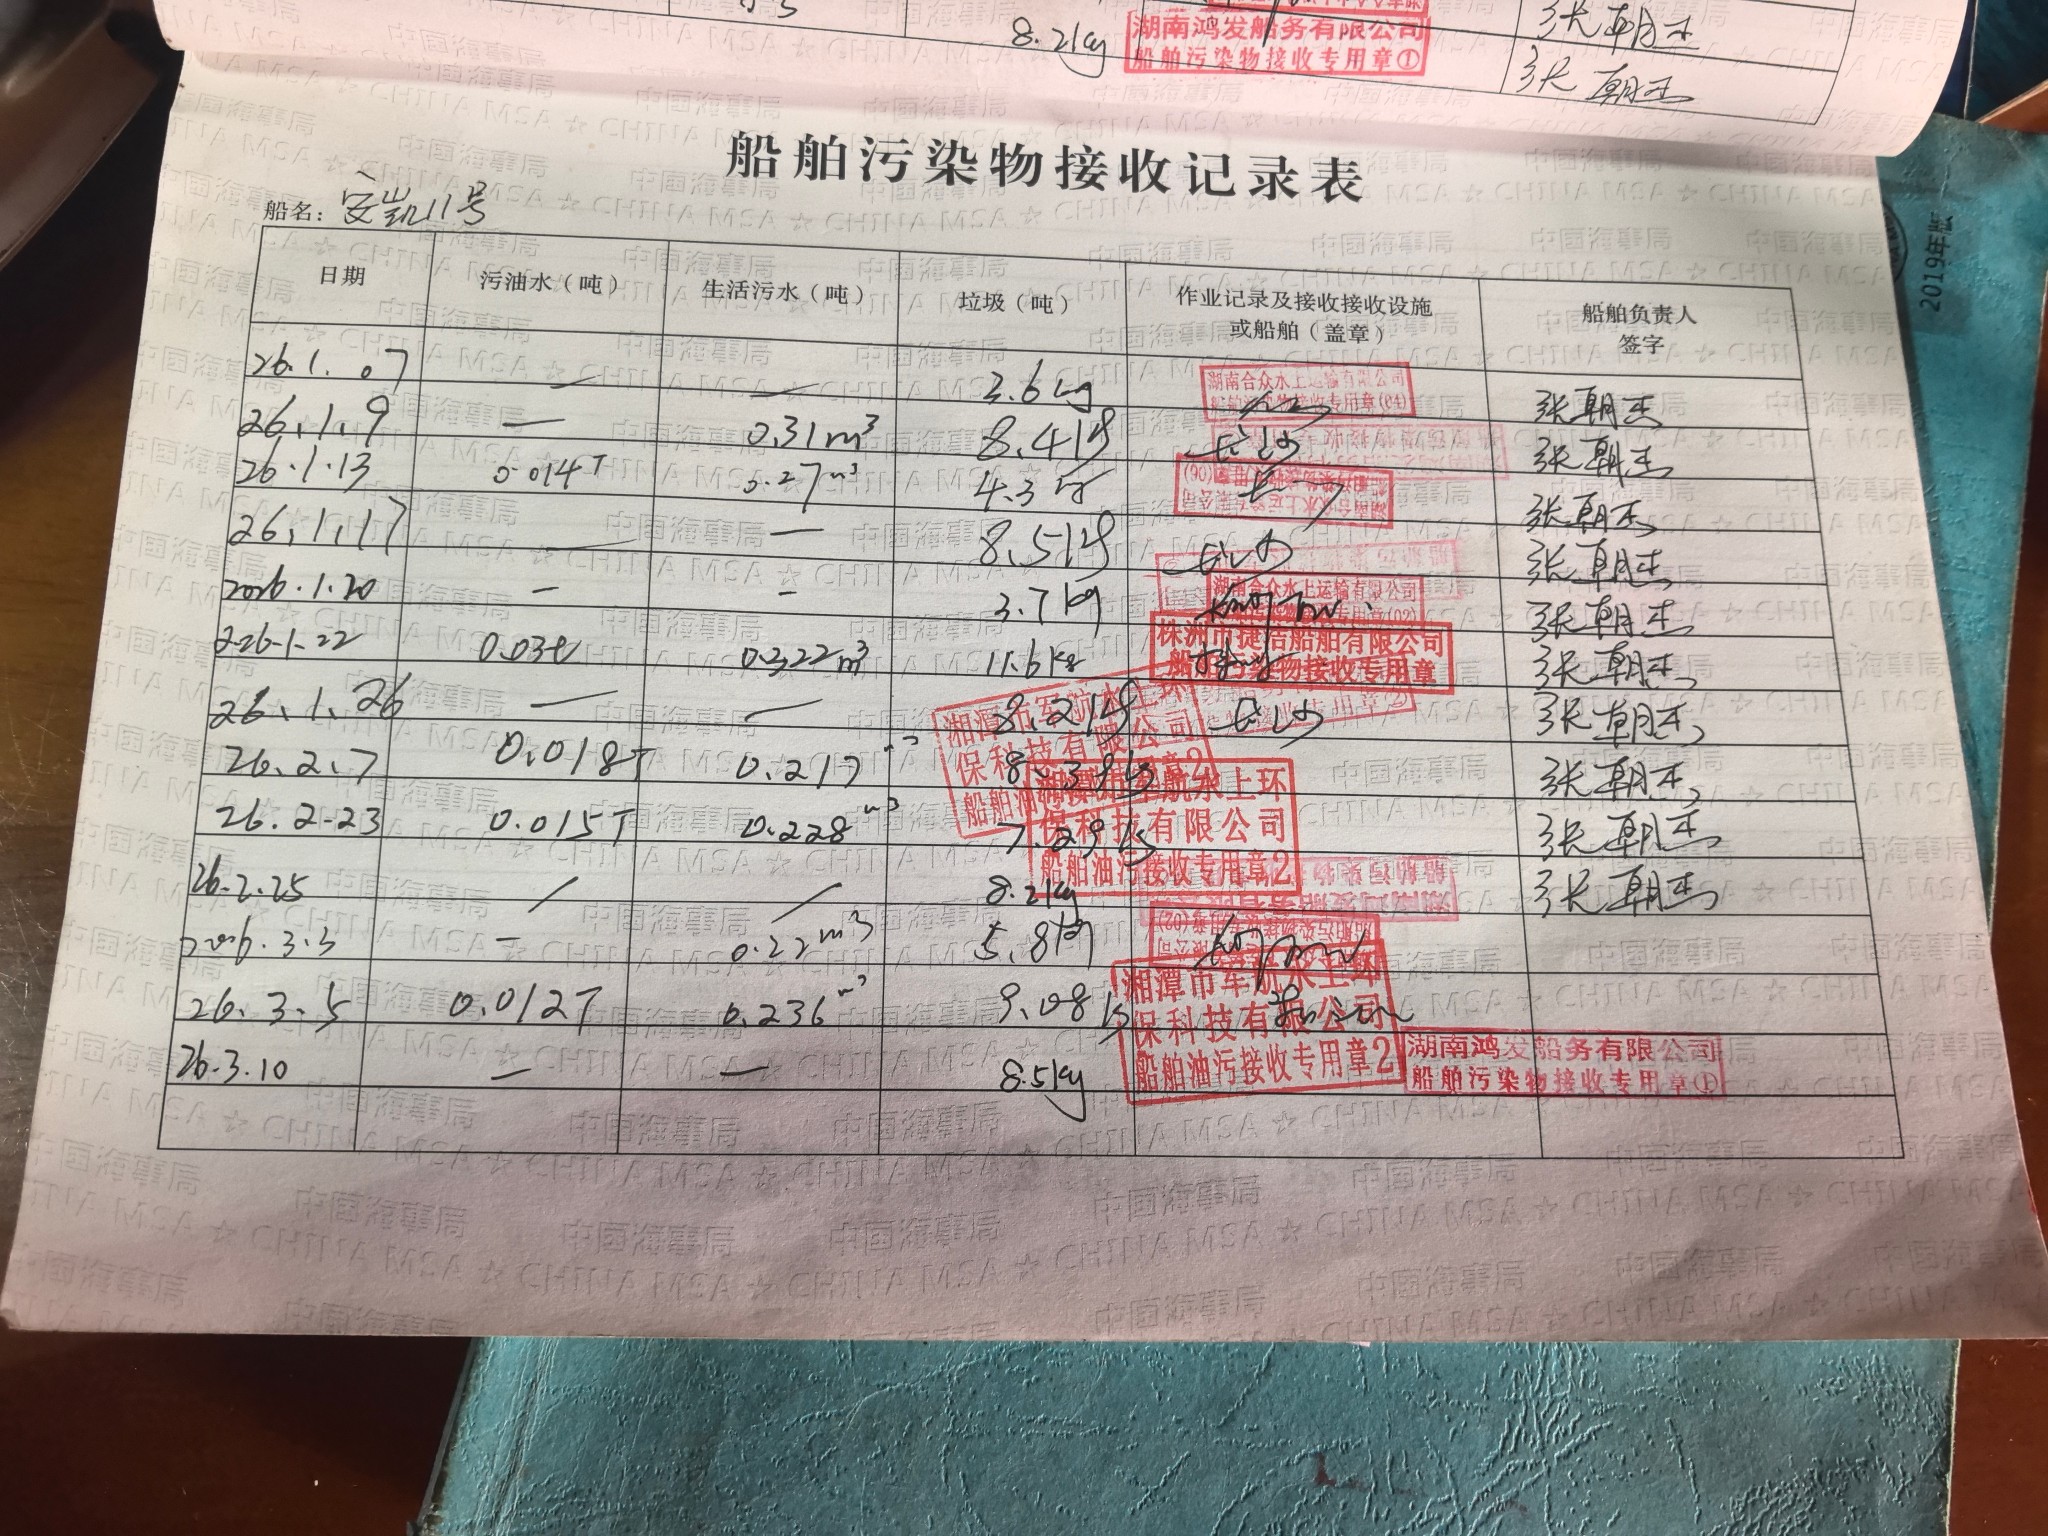 8.2kg 湖南鸿发船务有限公司 张朝杰
船舶污染物接收专用章① 张朝杰
船舶污染物接收记录表
船名：安凯11号
2019年版
日期 污油水（吨） 生活污水（吨） 垃圾（吨） 作业记录及接收接收设施或船舶（盖章） 船舶负责人签字
26.1.07 — — 3.6kg 湖南合众水上运输有限公司 船舶污染物接收专用章(04) 张朝杰
26.1.9 — 0.31m³ 8.4kg 长沙 张朝杰
26.1.13 0.014T 0.27m³ 4.3kg 张朝杰
26.1.17 — — 8.5kg 长沙 张朝杰
2026.1.20 — — 3.7kg 湖南合众水上运输有限公司 专用章(02) 张朝杰
2026.1.22 0.03t 0.322m³ 11.6kg 株洲市捷洁船舶有限公司 船舶污染物接收专用章 张朝杰
26.1.26 — — 8.2kg 长沙 张朝杰
26.2.7 0.018T 0.217m³ 8.39kg 湘潭市军航水上环保科技有限公司 船舶油污接收专用章2 张朝杰
26.2.23 0.015T 0.228m³ 7.29kg 水上环保科技有限公司 船舶油污接收专用章2 张朝杰
26.2.25 / / 8.2kg 张朝杰
2026.3.3 — 0.22m³ 5.8kg
26.3.5 0.012T 0.236m³ 9.08kg 湘潭市军航水上环保科技有限公司 船舶油污接收专用章2
26.3.10 — — 8.5kg 湖南鸿发船务有限公司 船舶污染物接收专用章①
中国海事局 CHINA MSA